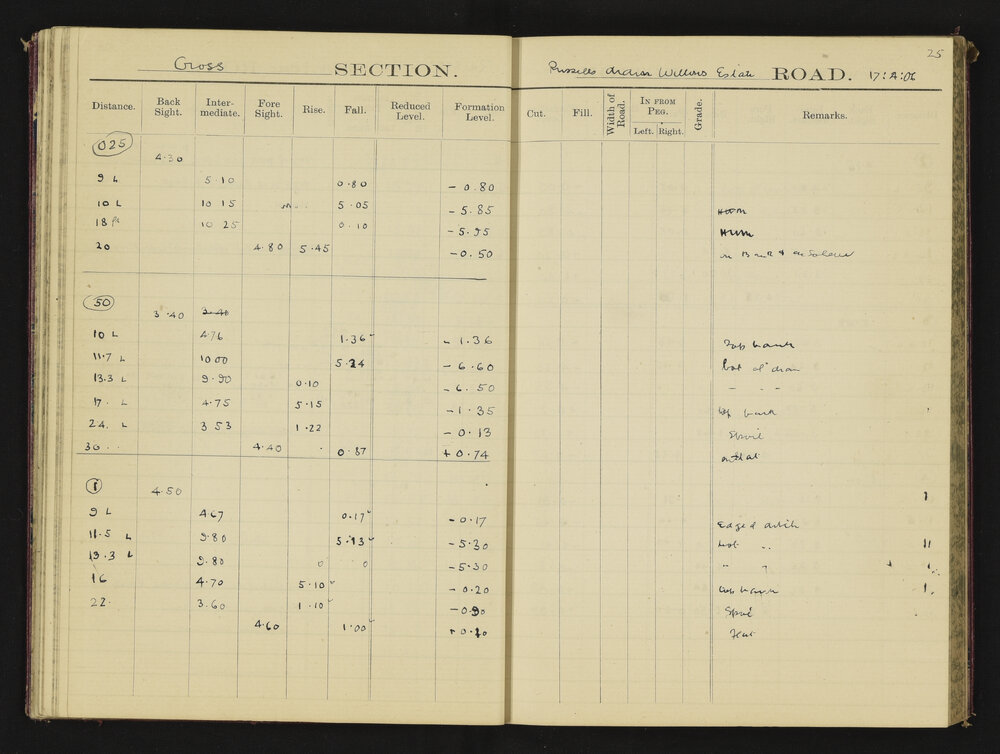 25
Cross SECTION. Russells drain Willows Estate ROAD. 17:A:06
Distance. Back Sight. Intermediate. Fore Sight. Rise. Fall. Reduced Level. Formation Level. Cut. Fill. Width of Road. In from Peg. Left. Right. Grade. Remarks.
025
4.30
9 L 5.10 0.80 - 0.80
10 L 10 15 5.05 - 5.85
18 10 25 0.10 - 5.95
20 4.80 5.45 - 0.50
50
3.40 3.40
10 L 4.76 1.36 - 1.36 Top bank
11.7 L 10 00 5.24 - 6.60 bot of drain
13.3 L 9.90 0.10 - 6.50 " " "
17. L 4.75 5.15 - 1.35 top bank
24. L 3 53 1.22 - 0.13 Spoil
36 4.40 0.87 + 0.74
1
4.50
9 L 4.67 0.17 - 0.17 Edge of ditch
11.5 L 9.80 5.13 - 5.30 bot "
13.3 L 9.80 0 0 - 5.30 " "
16 4.70 5.10 - 0.20 top bank
22 3.60 1.10 - 0.90 Spoil
4.60 1.00 + 0.10 Flat